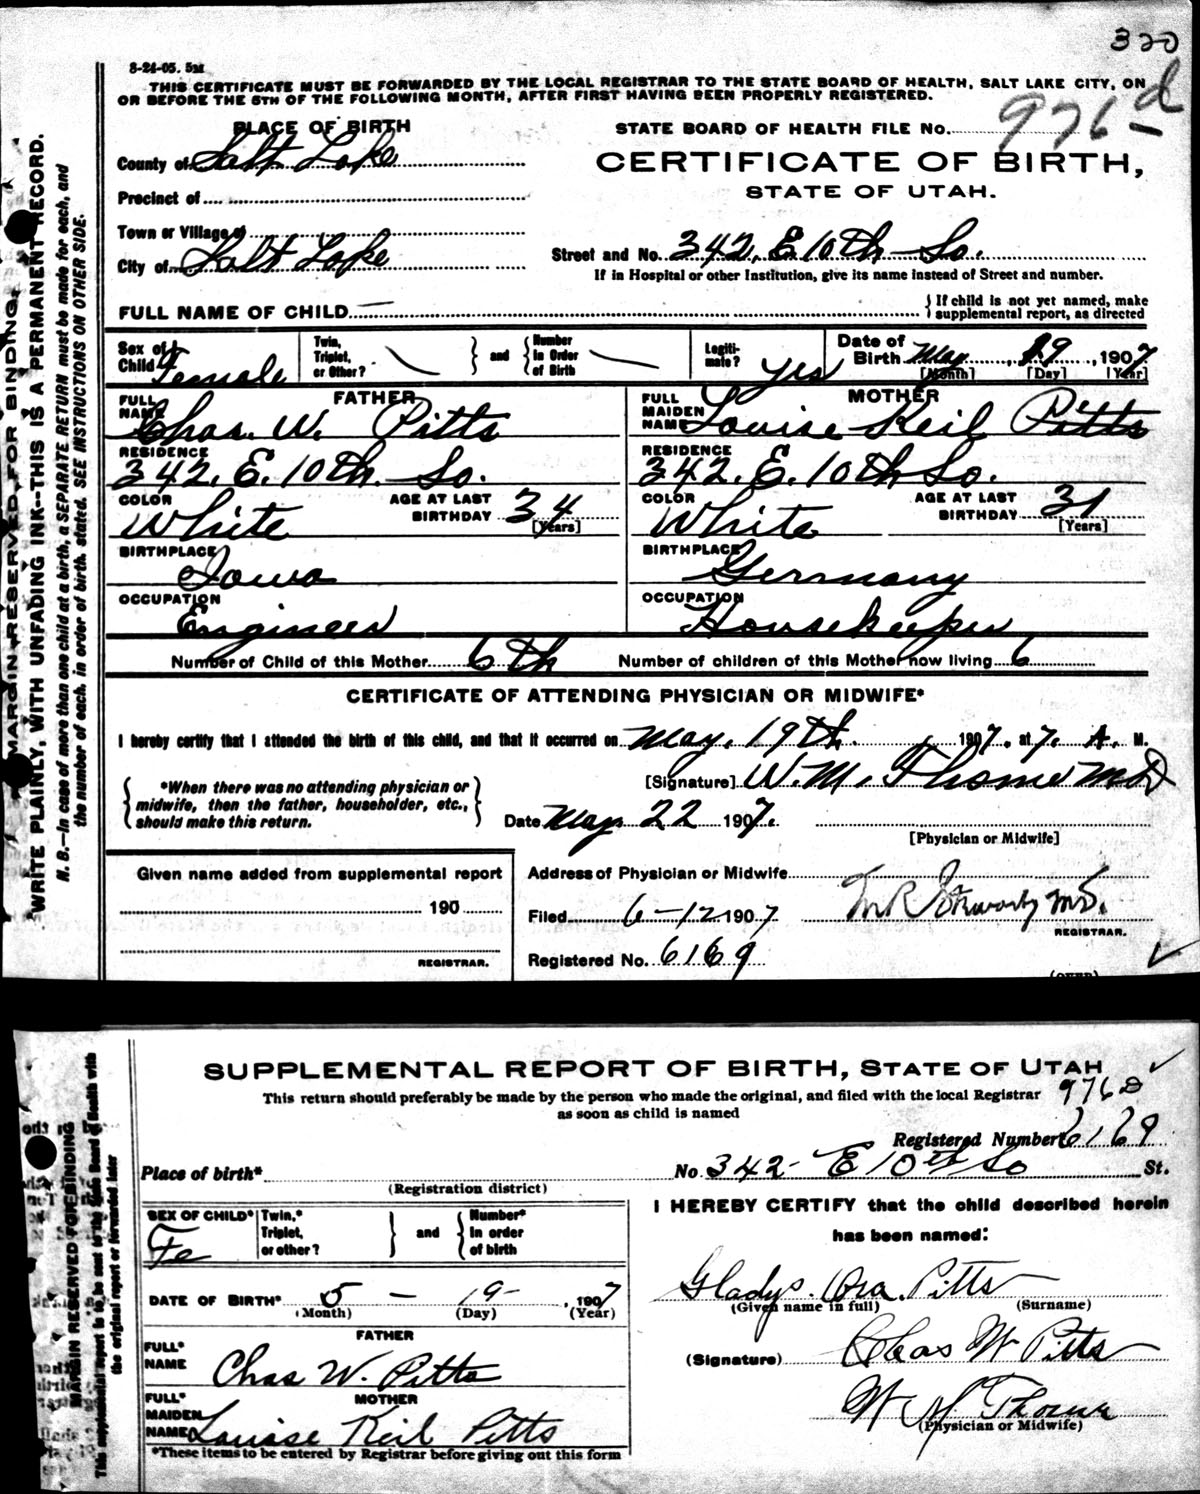 320
8-24-05. 5M
THIS CERTIFICATE MUST BE FORWARDED BY THE LOCAL REGISTRAR TO THE STATE BOARD OF HEALTH, SALT LAKE CITY, ON
OR BEFORE THE 5TH OF THE FOLLOWING MONTH, AFTER FIRST HAVING BEEN PROPERLY REGISTERED.
MARGIN RESERVED FOR BINDING.
WRITE PLAINLY, WITH UNFADING INK--THIS IS A PERMANENT RECORD.
N. B.—In case of more than one child at a birth, a SEPARATE RETURN must be made for each, and
the number of each, in order of birth, stated. SEE INSTRUCTIONS ON OTHER SIDE.
PLACE OF BIRTH
STATE BOARD OF HEALTH FILE NO. 976-d
County of Salt Lake
CERTIFICATE OF BIRTH,
STATE OF UTAH.
Precinct of
Town or Village of
City of Salt Lake
Street and No. 342. E 10th So.
If in Hospital or other Institution, give its name instead of Street and number.
FULL NAME OF CHILD —
If child is not yet named, make
supplemental report, as directed
Sex of Child Female
Twin, Triplet, or Other?
and
Number In Order of Birth
Legiti-mate? yes
Date of Birth May 19, 1907
[Month] [Day] [Year]
FATHER
FULL NAME Chas. W. Pitts
RESIDENCE 342. E. 10th. So.
COLOR White
AGE AT LAST BIRTHDAY 34 [Years]
BIRTHPLACE Iowa
OCCUPATION Engineer
MOTHER
FULL MAIDEN NAME Louise Keil Pitts
RESIDENCE 342. E. 10th So.
COLOR White
AGE AT LAST BIRTHDAY 31 [Years]
BIRTHPLACE Germany
OCCUPATION Housekeeper
Number of Child of this Mother 6th Number of children of this Mother now living 6
CERTIFICATE OF ATTENDING PHYSICIAN OR MIDWIFE*
I hereby certify that I attended the birth of this child, and that it occurred on May, 19th. 1907. at 7. A. M.
*When there was no attending physician or
midwife, then the father, householder, etc.,
should make this return.
[Signature] W. M. Thome MD
Date May 22 1907.
[Physician or Midwife]
Given name added from supplemental report
190
REGISTRAR.
Address of Physician or Midwife
Filed 6-12-1907
REGISTRAR.
Registered No. 6169
(OVER)
SUPPLEMENTAL REPORT OF BIRTH, STATE OF UTAH
This return should preferably be made by the person who made the original, and filed with the local Registrar
as soon as child is named
976 D
MARGIN RESERVED FOR BINDING
This supplemental report to be sent to the State Board of Health with
the original report or forwarded later
Registered Number 6169
Place of birth* No. 342- E 10th So St.
(Registration district)
SEX OF CHILD* Fe
Twin,* Triplet, or other?
and
Number* In order of birth
DATE OF BIRTH* 5 - 19- , 1907
(Month) (Day) (Year)
FATHER
FULL* NAME Chas W. Pitts
MOTHER
FULL* MAIDEN NAME Louise Keil Pitts
*These items to be entered by Registrar before giving out this form
I HEREBY CERTIFY that the child described herein
has been named:
Gladys. Ora. Pitts
(Given name in full) (Surname)
(Signature) Chas W Pitts
W M Thome
(Physician or Midwife)